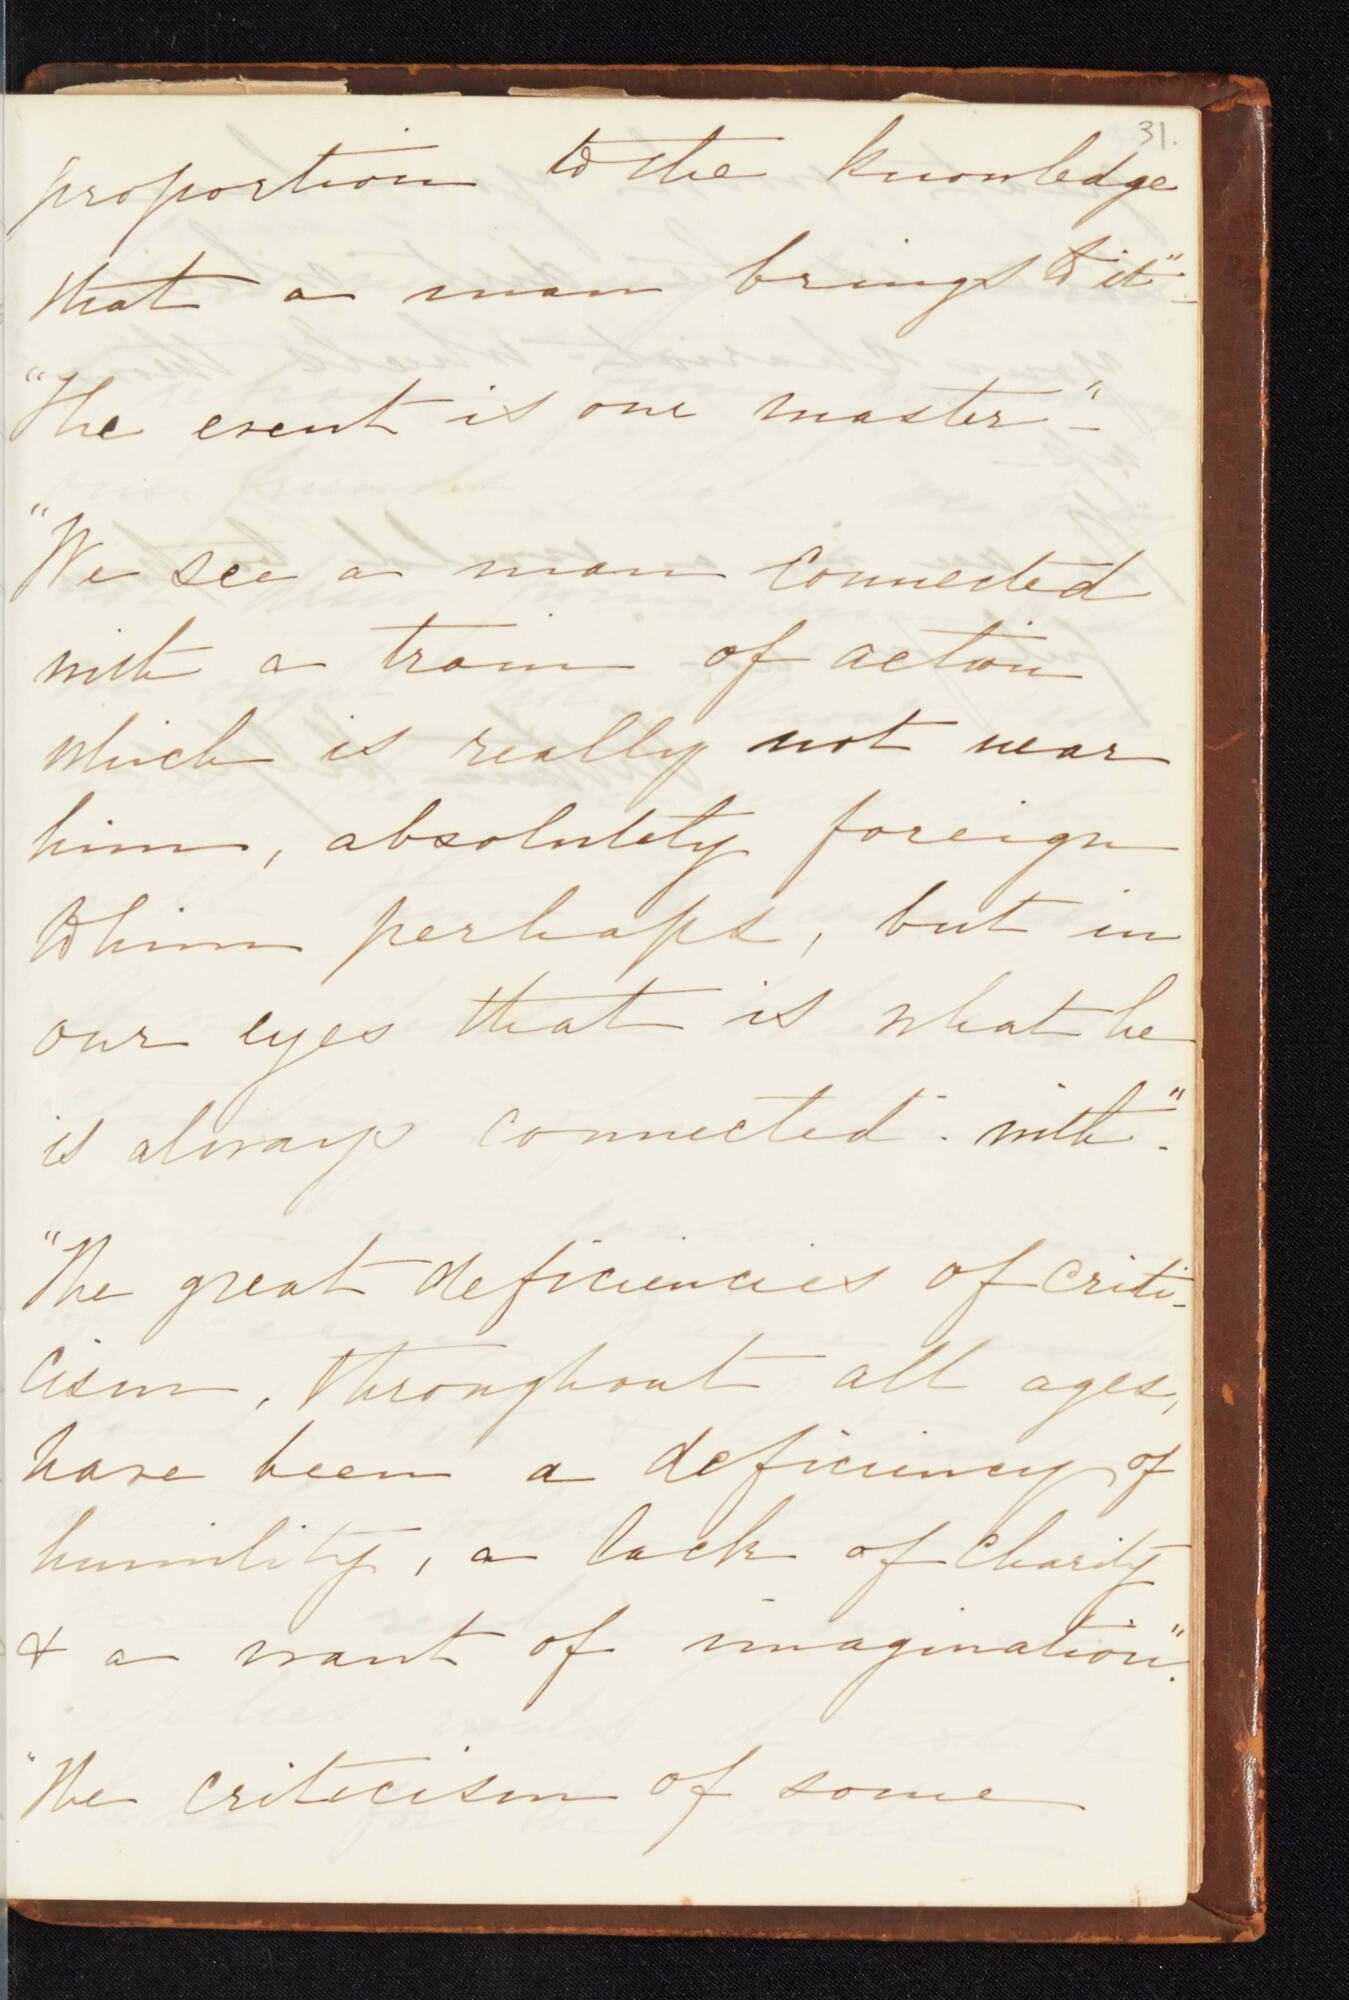 31.
proportion to the knowledge
that a man brings to it"_
"The event is our master"_
"We see a man connected
with a train of action
which is really not near
him, absolutely foreign
to him perhaps, but in
our eyes that is what he
is always connected with".
"The great deficiencies of criti-
cism, throughout all ages,
have been a deficiency of
humility, a lack of charity
& a want of imagination".
"The criticism of some